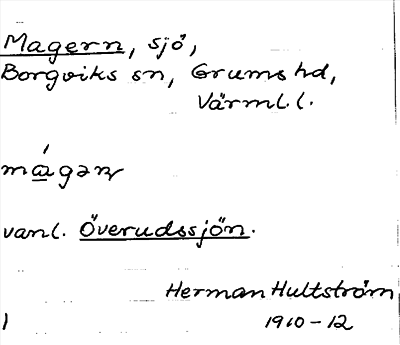 Magern, sjö,
Borgviks sn, Grums hd,
Värml. l.
vanl. Överudssjön.
Herman Hultström
1910-12